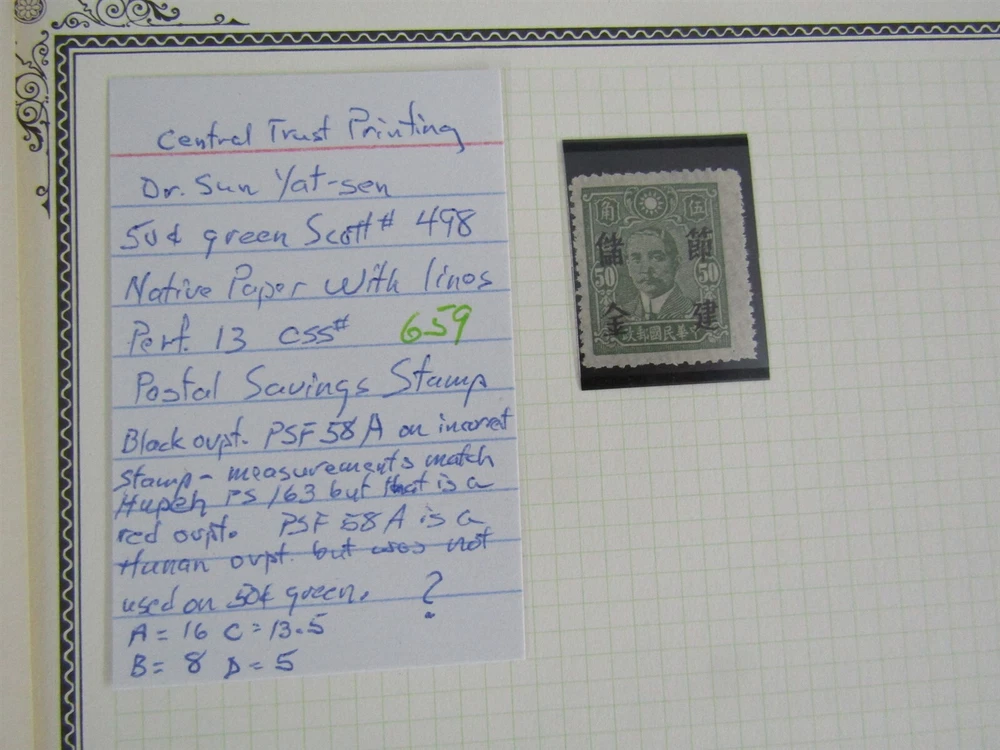 Central Trust Printing
Dr. Sun Yat-sen
50¢ green Scott# 498
Native Paper with lines
Perf. 13 CSS# 659
Postal Savings Stamp
Black ovpt. PSF 58 A on incorrect
stamp - measurements match
Hupeh PS 163 but that is a
red ovpt. PSF 58 A is a
Hunan ovpt. but was not
used on 50¢ green. ?
A = 16 C = 13.5
B = 8 D = 5
角 伍
儲 節
50 50
金 建
政郵國民華中